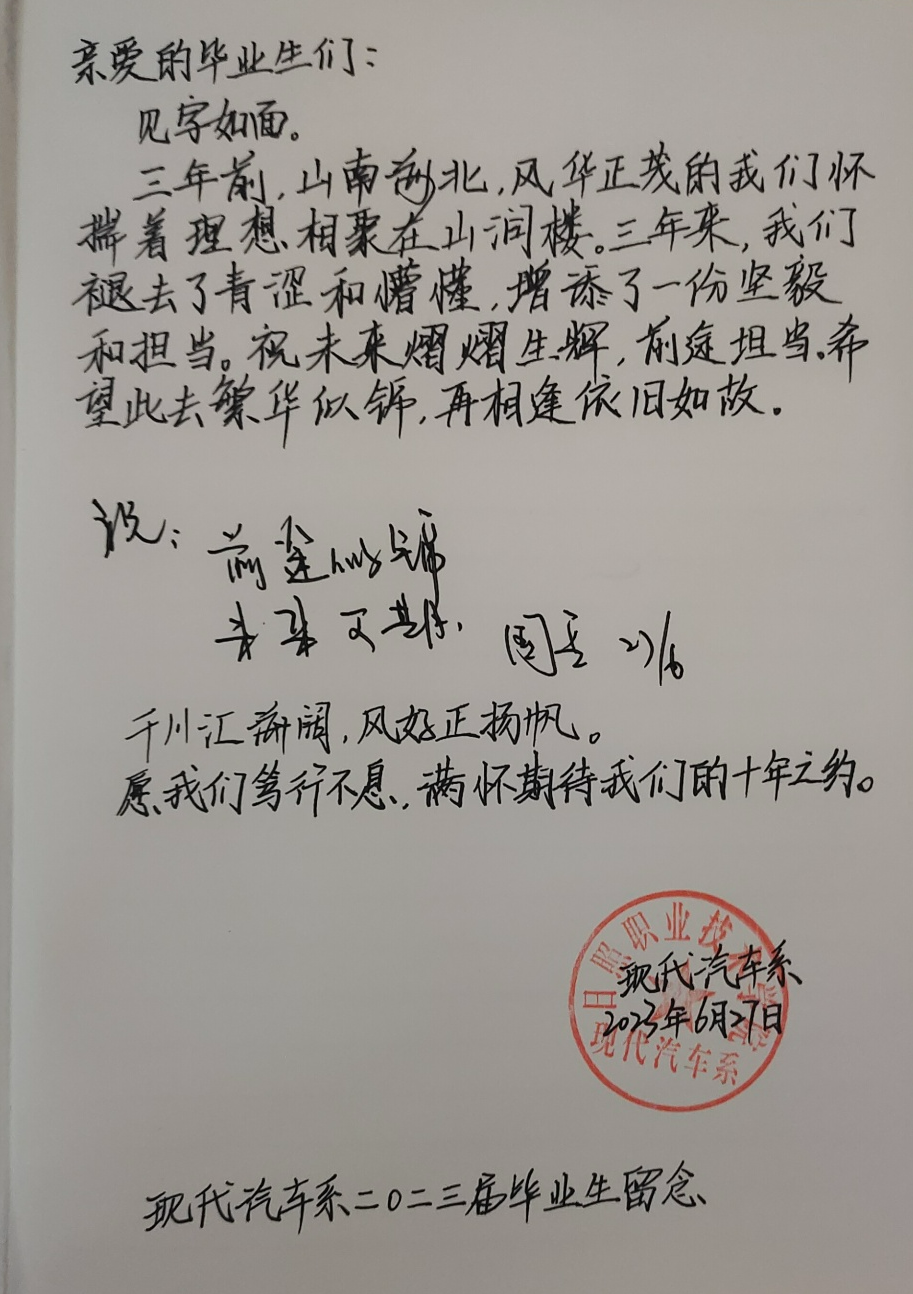 亲爱的毕业生们:
见字如面。
三年前,山南海北,风华正茂的我们怀
揣着理想相聚在山润楼。三年来,我们
褪去了青涩和懵懂,增添了一份坚毅
和担当。祝未来熠熠生辉,前途担当。希
望此去繁华似锦,再相逢依旧如故。
祝:前途似锦
未来可期.
27/6
千川汇海阔,风好正扬帆。
愿我们笃行不息,满怀期待我们的十年之约。
日照职业技术学院
现代汽车系
2023年6月27日
现代汽车系
现代汽车系二〇二三届毕业生留念